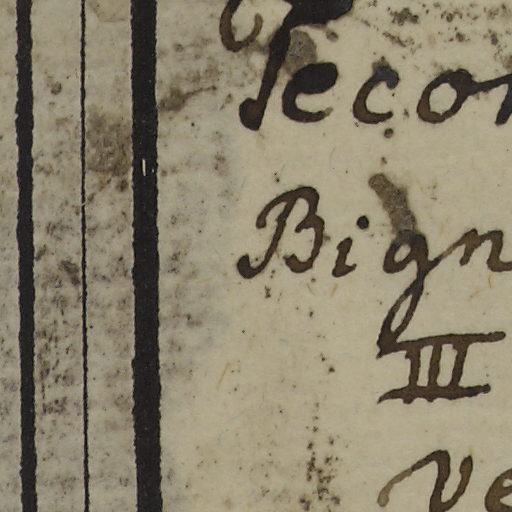 Secon
Bign
III
Ve